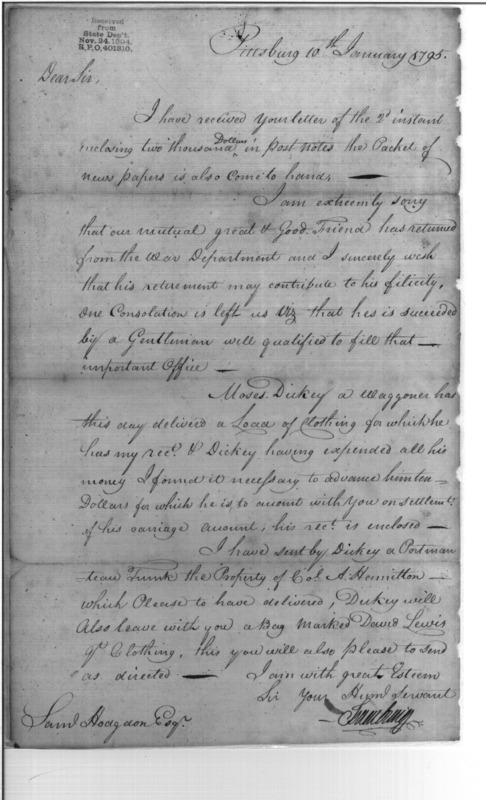 Received
from
State Dep't.
Nov. 24, 1894,
R.P.O, 401310.
Pittsburg 10th January 1795.
Dear Sir,
I have received Your letter of the 2d instant
enclosing two thousand Dollars in post notes the Packet of
news papers is also Come to hand, —
I am extreemly sorry
that our mutual great & Good Friend has returned
from the War Department and I sincerely wish
that his retirement may contribute to his filicity,
One Consolation is left us Viz that he is succeeded
by a Gentleman well qualified to fill that —
important Office —
Moses Dickey a Waggoner has
this day delivered a Load of Clothing for which he
has my rect. & Dickey having expended all his
money I found it necessary to advance him ten —
Dollars for which he is to account with You on settlemt.
of his carriage account, his rect. is enclosed —
I have sent by Dickey a Portman
teau Trunk the Property of Col. A. Hamilton —
which Please to have delivered, Dickey will
Also leave with you a Bag Marked David Lewis
Clothing, this you will also please to send
as directed — I am with great Esteem
Sir Your Huml Servant
Saml Hodgdon Esqr.